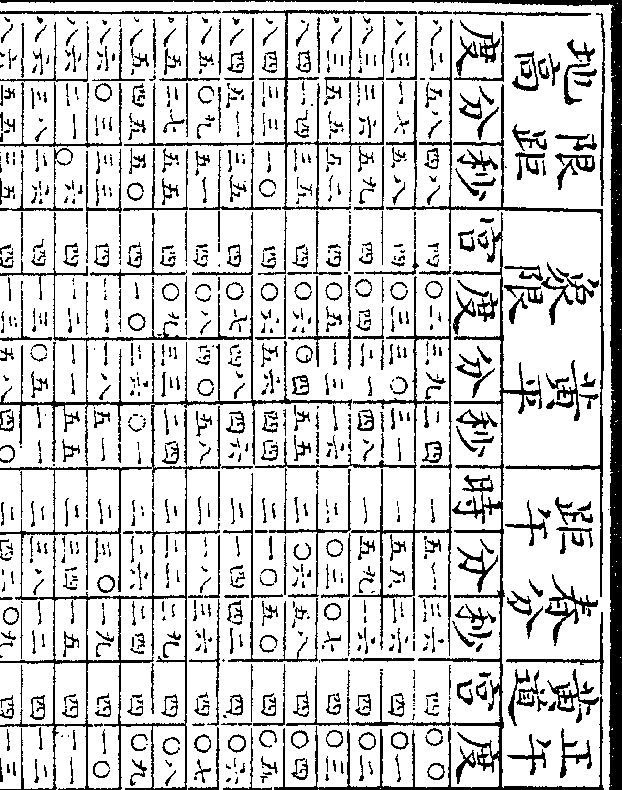 限距地高 黃平象限 春分距午 正午黃道
度 分 秒 宮 度 分 秒 時 分 秒 宮 度
八二 五八 四八 四 〇二 三九 二四 一 五一 三六 四 〇〇
八三 一七 五八 四 〇三 三〇 三一 一 五五 二六 四 〇一
八三 三六 五九 四 〇四 二一 四八 一 五九 一六 四 〇二
八三 五五 五二 四 〇五 一三 一六 二 〇三 〇七 四 〇三
八四 一四 三五 四 〇六 〇四 五五 二 〇六 五八 四 〇四
八四 三三 一〇 四 〇六 五六 四四 二 一〇 五〇 四 〇五
八四 五一 三五 四 〇七 四八 四六 二 一四 四二 四 〇六
八五 〇九 五一 四 〇八 四〇 五八 二 一八 三六 四 〇七
八五 二七 五五 四 〇九 三三 二四 二 二二 二九 四 〇八
八五 四五 五〇 四 一〇 二六 〇一 二 二六 二四 四 〇九
八六 〇三 三三 四 一一 一八 五一 二 三〇 一九 四 一〇
八六 二一 〇六 四 一二 一一 五五 二 三四 一五 四 一一
八六 三八 二六 四 一三 〇五 一一 二 三八 一二 四 一二
八六 五五 三五 四 一三 五八 四〇 二 四二 〇九 四 一三